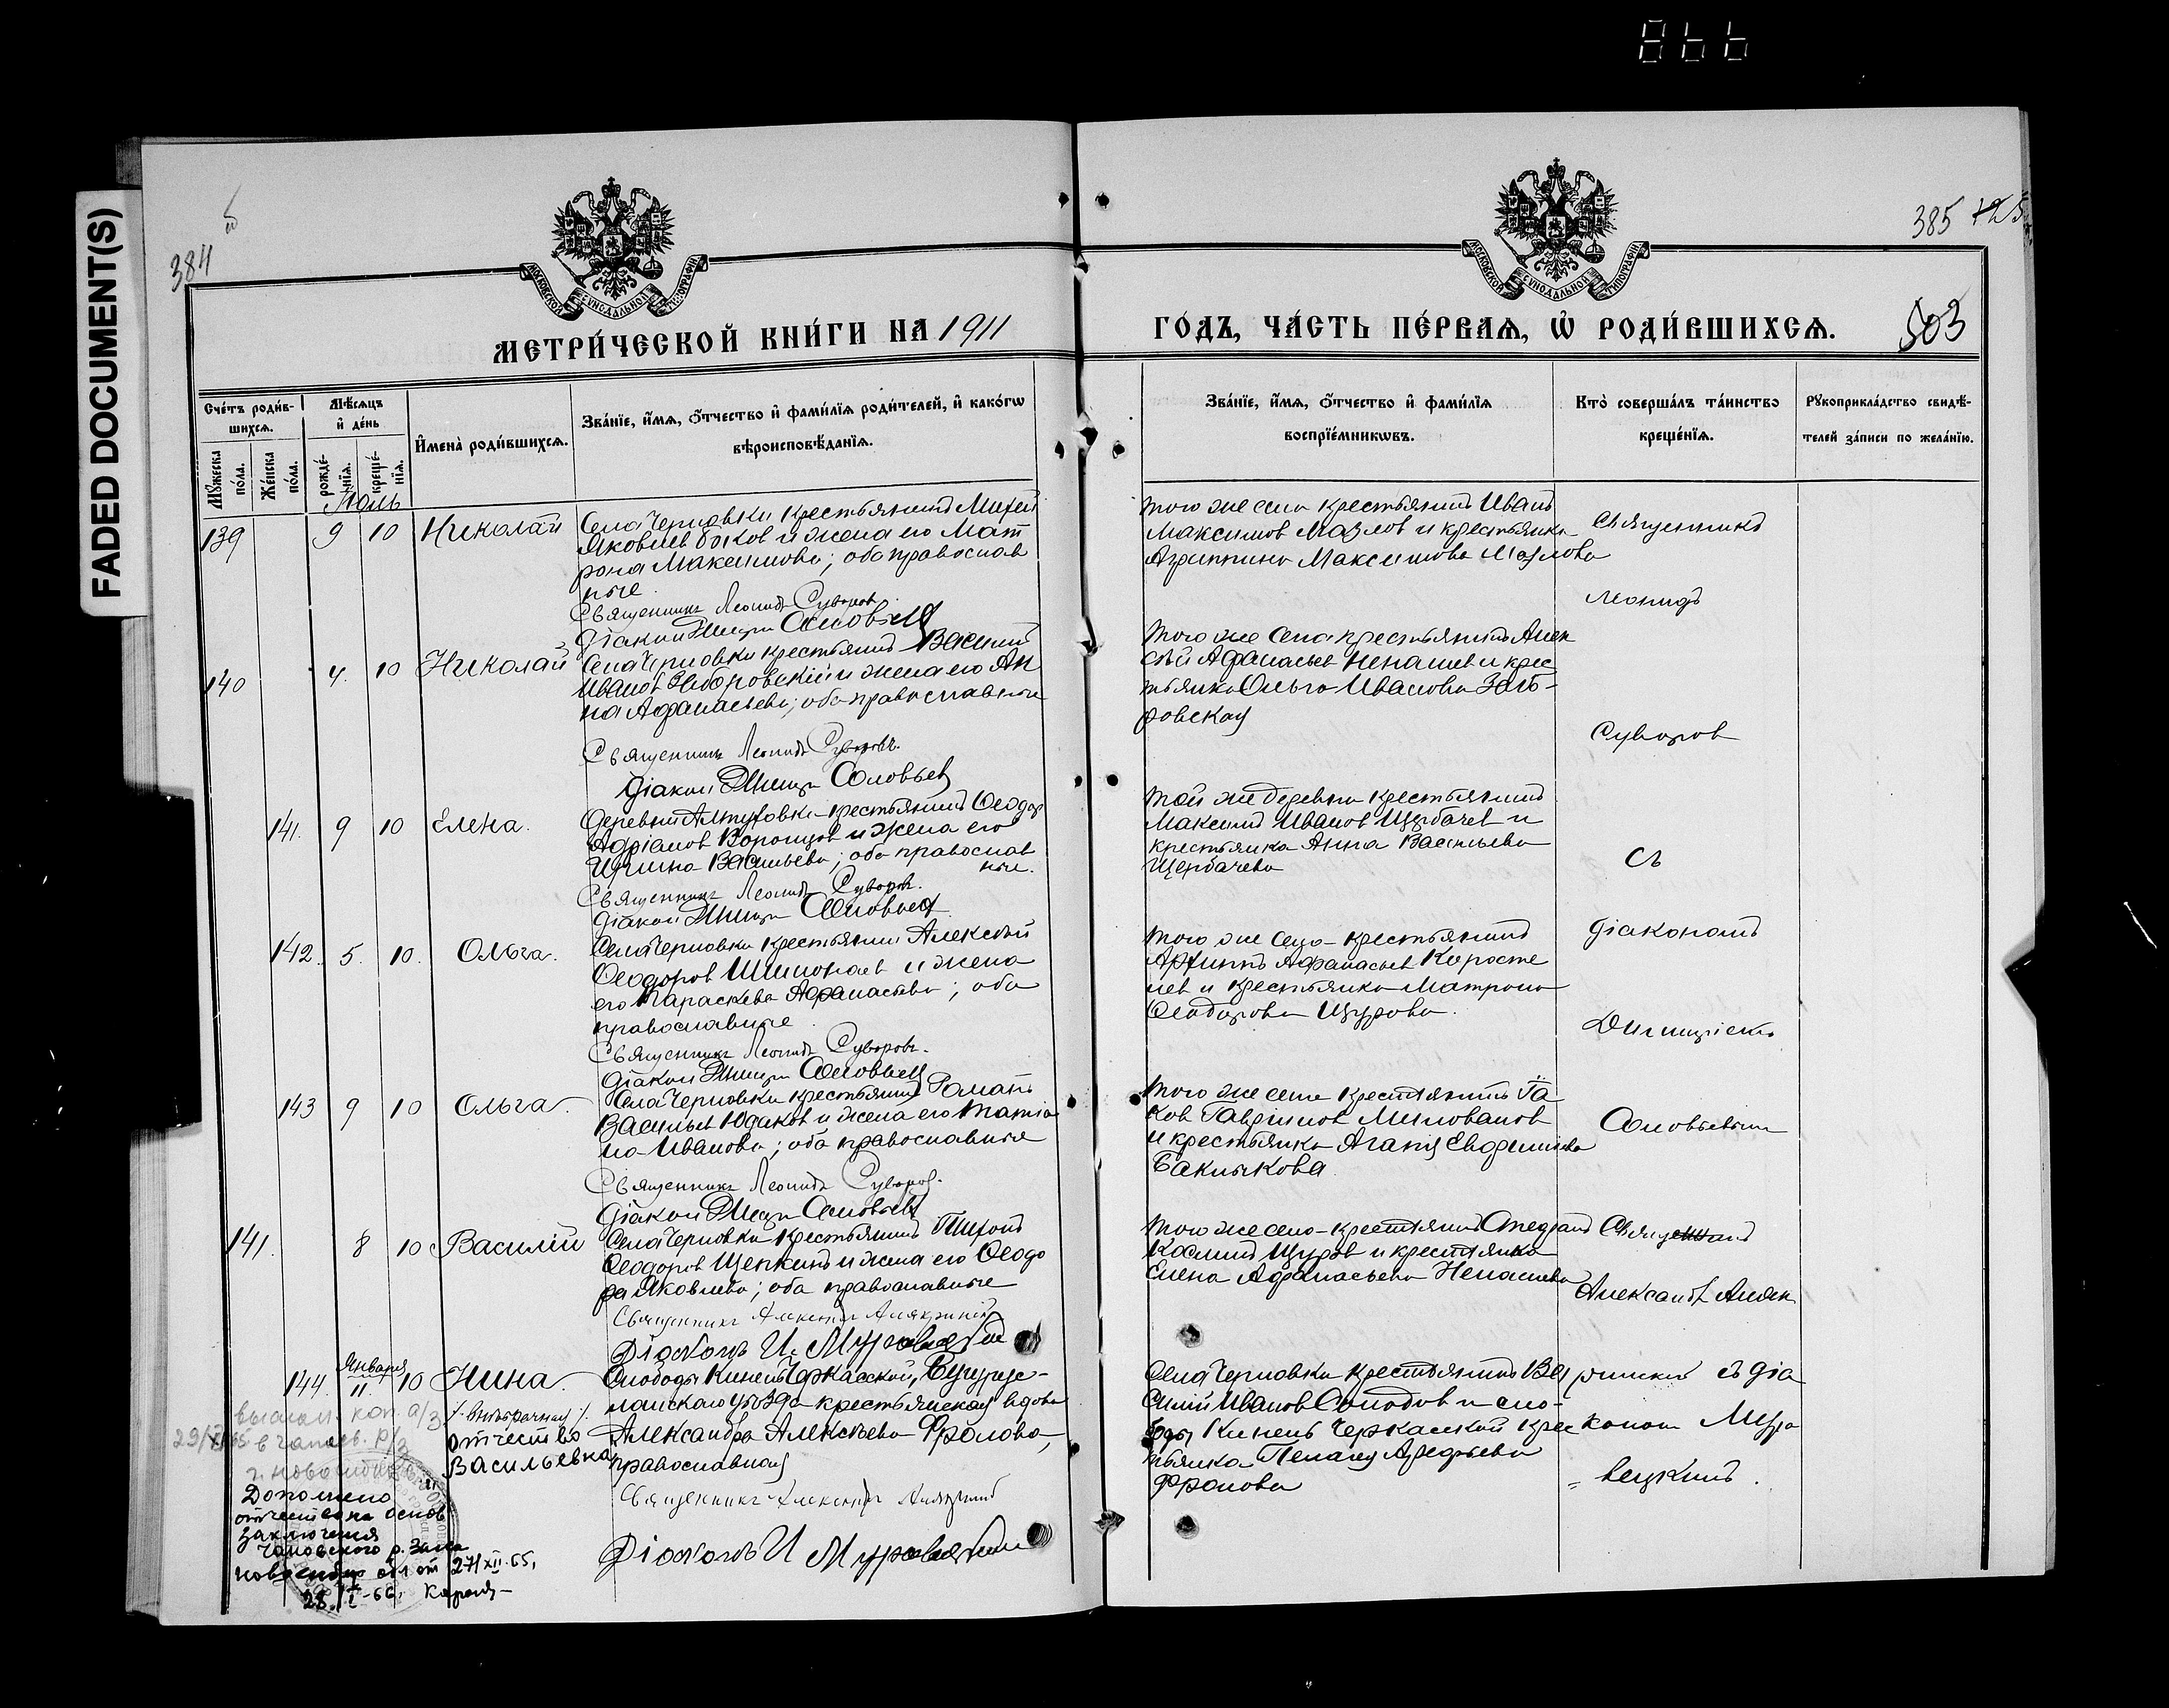 866
FADED DOCUMENT(S)
384
385
МОСКОВСКОЙ СѴНОДАЛЬНОЙ ТИПОГРАФІИ
МОСКОВСКОЙ СѴНОДАЛЬНОЙ ТИПОГРАФІИ
МЕТРИ́ЧЕСКОЙ КНИ́ГИ НА 1911
ГО́ДЪ, ЧА́СТЬ ПЕ́РВАЯ, Ѡ РОДИ́ВШИХСЯ.
503
Сче́тъ роди́в-
шихся.
Мѣ́сяцъ
и҆ де́нь
Мꙋ́жеска
по́ла.
Же́нска
по́ла.
рожде́-
нїя.
креще́-
нїя.
И҆мена̀ роди́вшихся.
Зва́нїе, и҆́мя, ѻ҆́тчество и҆ фами́лїя роди́телей, и҆ како́гѡ
вѣроисповѣ́данїя.
Зва́нїе, и҆́мя, ѻ҆́тчество и҆ фами́лїя
воспрїе́мникѡвъ.
Кто̀ соверша́лъ та́инство
креще́нїя.
Рꙋкоприкла́дство свидѣ́-
телей за́писи по жела́нїю.
Іюль
139 9 10 Николай
Села Черновки крестьянинъ Михей
Яковлев Быков и жена его Мат
рона Максимова; оба православ
ные
Священникъ Леонидъ Суворов.
Діакон Димитри Соловьев
того же села крестьянинъ Иванъ
Максимов Мазлов и крестьянка
Агриппина Максимова Мазлова
Священникъ
Леонидъ
140 4. 10 Николай
Села Черновки крестьянинъ Василий
Иванов Заборовский и жена его Ан
на Афанасьева; оба православные
Священникъ Леонидъ Суворовъ.
Діакон Димитри Соловьев
того же села крестьянинъ Алек
сѣй Афанасьев Ненашев и крес
тьянка Ольга Иванова Забо-
ровская
Суворов
141. 9 10 Елена.
Деревни крестьянинъ Ѳеодор
Адріанов Воронцов и жена его
Ирина Васильева; оба православ
ные.
Священникъ Леонидъ Суворов.
Діакон Димитри Соловьев
той же деревни крестьянинъ
Максимъ Иванов Щербачев и
крестьянка Анна Васильева
Щербачева
Съ
142. 5. 10. Ольга.
Села Черновки крестьянин Алексѣй
Ѳеодоров и жена
его Параскева Афанасьева; оба
православные.
Священникъ Леонидъ Суворовъ.
Діакон Димитри Соловьев
того же села крестьянинъ
Архиппъ Афанасьев Коросте
лев и крестьянка Матрона
Ѳеодорова Щурова.
Діакономъ
Димитріемъ
143 9 10 Ольга.
Села Черновки крестьянин Романъ
Васильев Юдаков и жена его Татіа
на Иванова; оба православные
Священникъ Леонидъ Суворов.
Діакон Димитри Соловьев
того же села крестьянинъ Іа
ков Гаврилов Милованов
и крестьянка Агапія Евфимиева
Баклыкова.
Соловьевым
141. 8 10 Василій
Села Черновки крестьянинъ Тихонъ
Ѳеодоров Щепкинъ и жена его Ѳеодо
ра Яковлева; оба православные
Священникъ Александръ
Діаконъ И. Муравецкій
того же села крестьянинъ
Косминъ Щуров и крестьянка
Елена Афанасьева Ненашева
Священникъ
Александр
144. Января 11 10 Нина.
/:внебрачная:/
отчество
Васильевна
Слободы Кинель Черкасской, Бугурус-
ланскаго уѣзда крестьянская вдова
Александра Алексѣева Фролова,
православная
Священникъ Александръ
Діаконъ И Муравецкій
Села Черновки крестьянинъ Ва
силий Иванов Солодов и сло-
боды Кинель Черкасской крес
тьянка Пелагея Арефьева
Фролова
съ діа
коном Мура
вецкимъ.
Дополнено
отчество на основ
заключения
Чановского р. Загса
Новосибир обл от 27/XII.65,
28/I-66.